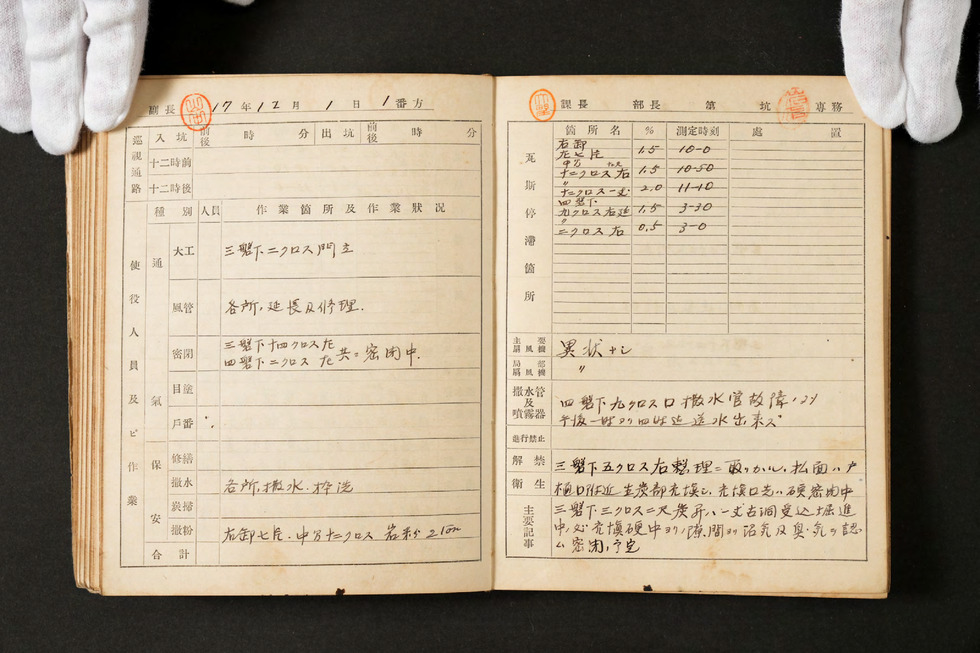 副長 17年12月1日1番方
巡視通路 入坑 前後 時 分 出坑 前後 時 分
十二時前
十二時後
使役人員及ビ作業
種別 人員 作業箇所及作業状況
通氣
大工 三盤下二クロス門立
風管 各所、延長及修理.
密閉 三盤下十四クロス左
四盤下二クロス左共ニ密閉中.
目塗
戸番
保安
修繕
撒水 各所、撒水、枠洗
炭掃
撒粉 右卸七片、中 十二クロス 岩粉
合計
課長 部長 第 坑 専務
瓦斯停滞箇所
箇所名 % 測定時刻 處置
右卸
左七片 1.5 10-0
十二クロス右 1.5 10-50
〃
十二クロス一丈 2.0 11-10
四盤下
九クロス右延 1.5 3-30
〃
二クロス右 0.5 3-0
主要扇風機 異状ナシ
局部扇風機 〃
撒水管及噴霧器 四盤下九クロス口撒水管故障ノ
午後一時ヨリ四時迄送水出来ズ
進行禁止
解禁
衛生
三盤下五クロス右整理ニ取リカカル、払面ハ戸
樋口附近 炭部充填シ、充填口先ハ硬密閉中
主要記事
三盤下三クロス二尺 昇ハ一丈古洞 込掘進
中、 充填硬中ヨリノ隙間ヨリ沼気及臭気ヲ認
ム密閉ノ予定